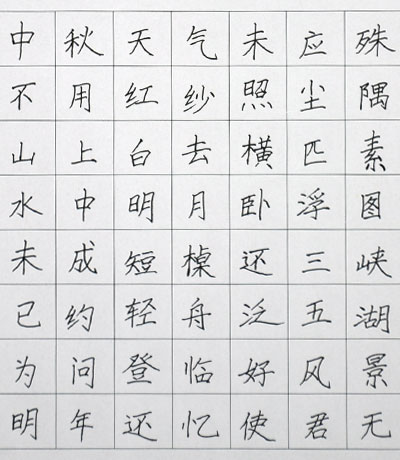 中秋天气未应殊
不用红纱照尘隅
山上白去横匹素
水中明月卧浮图
未成短槕还三峡
已约轻舟泛五湖
为问登临好风景
明年还忆使君无